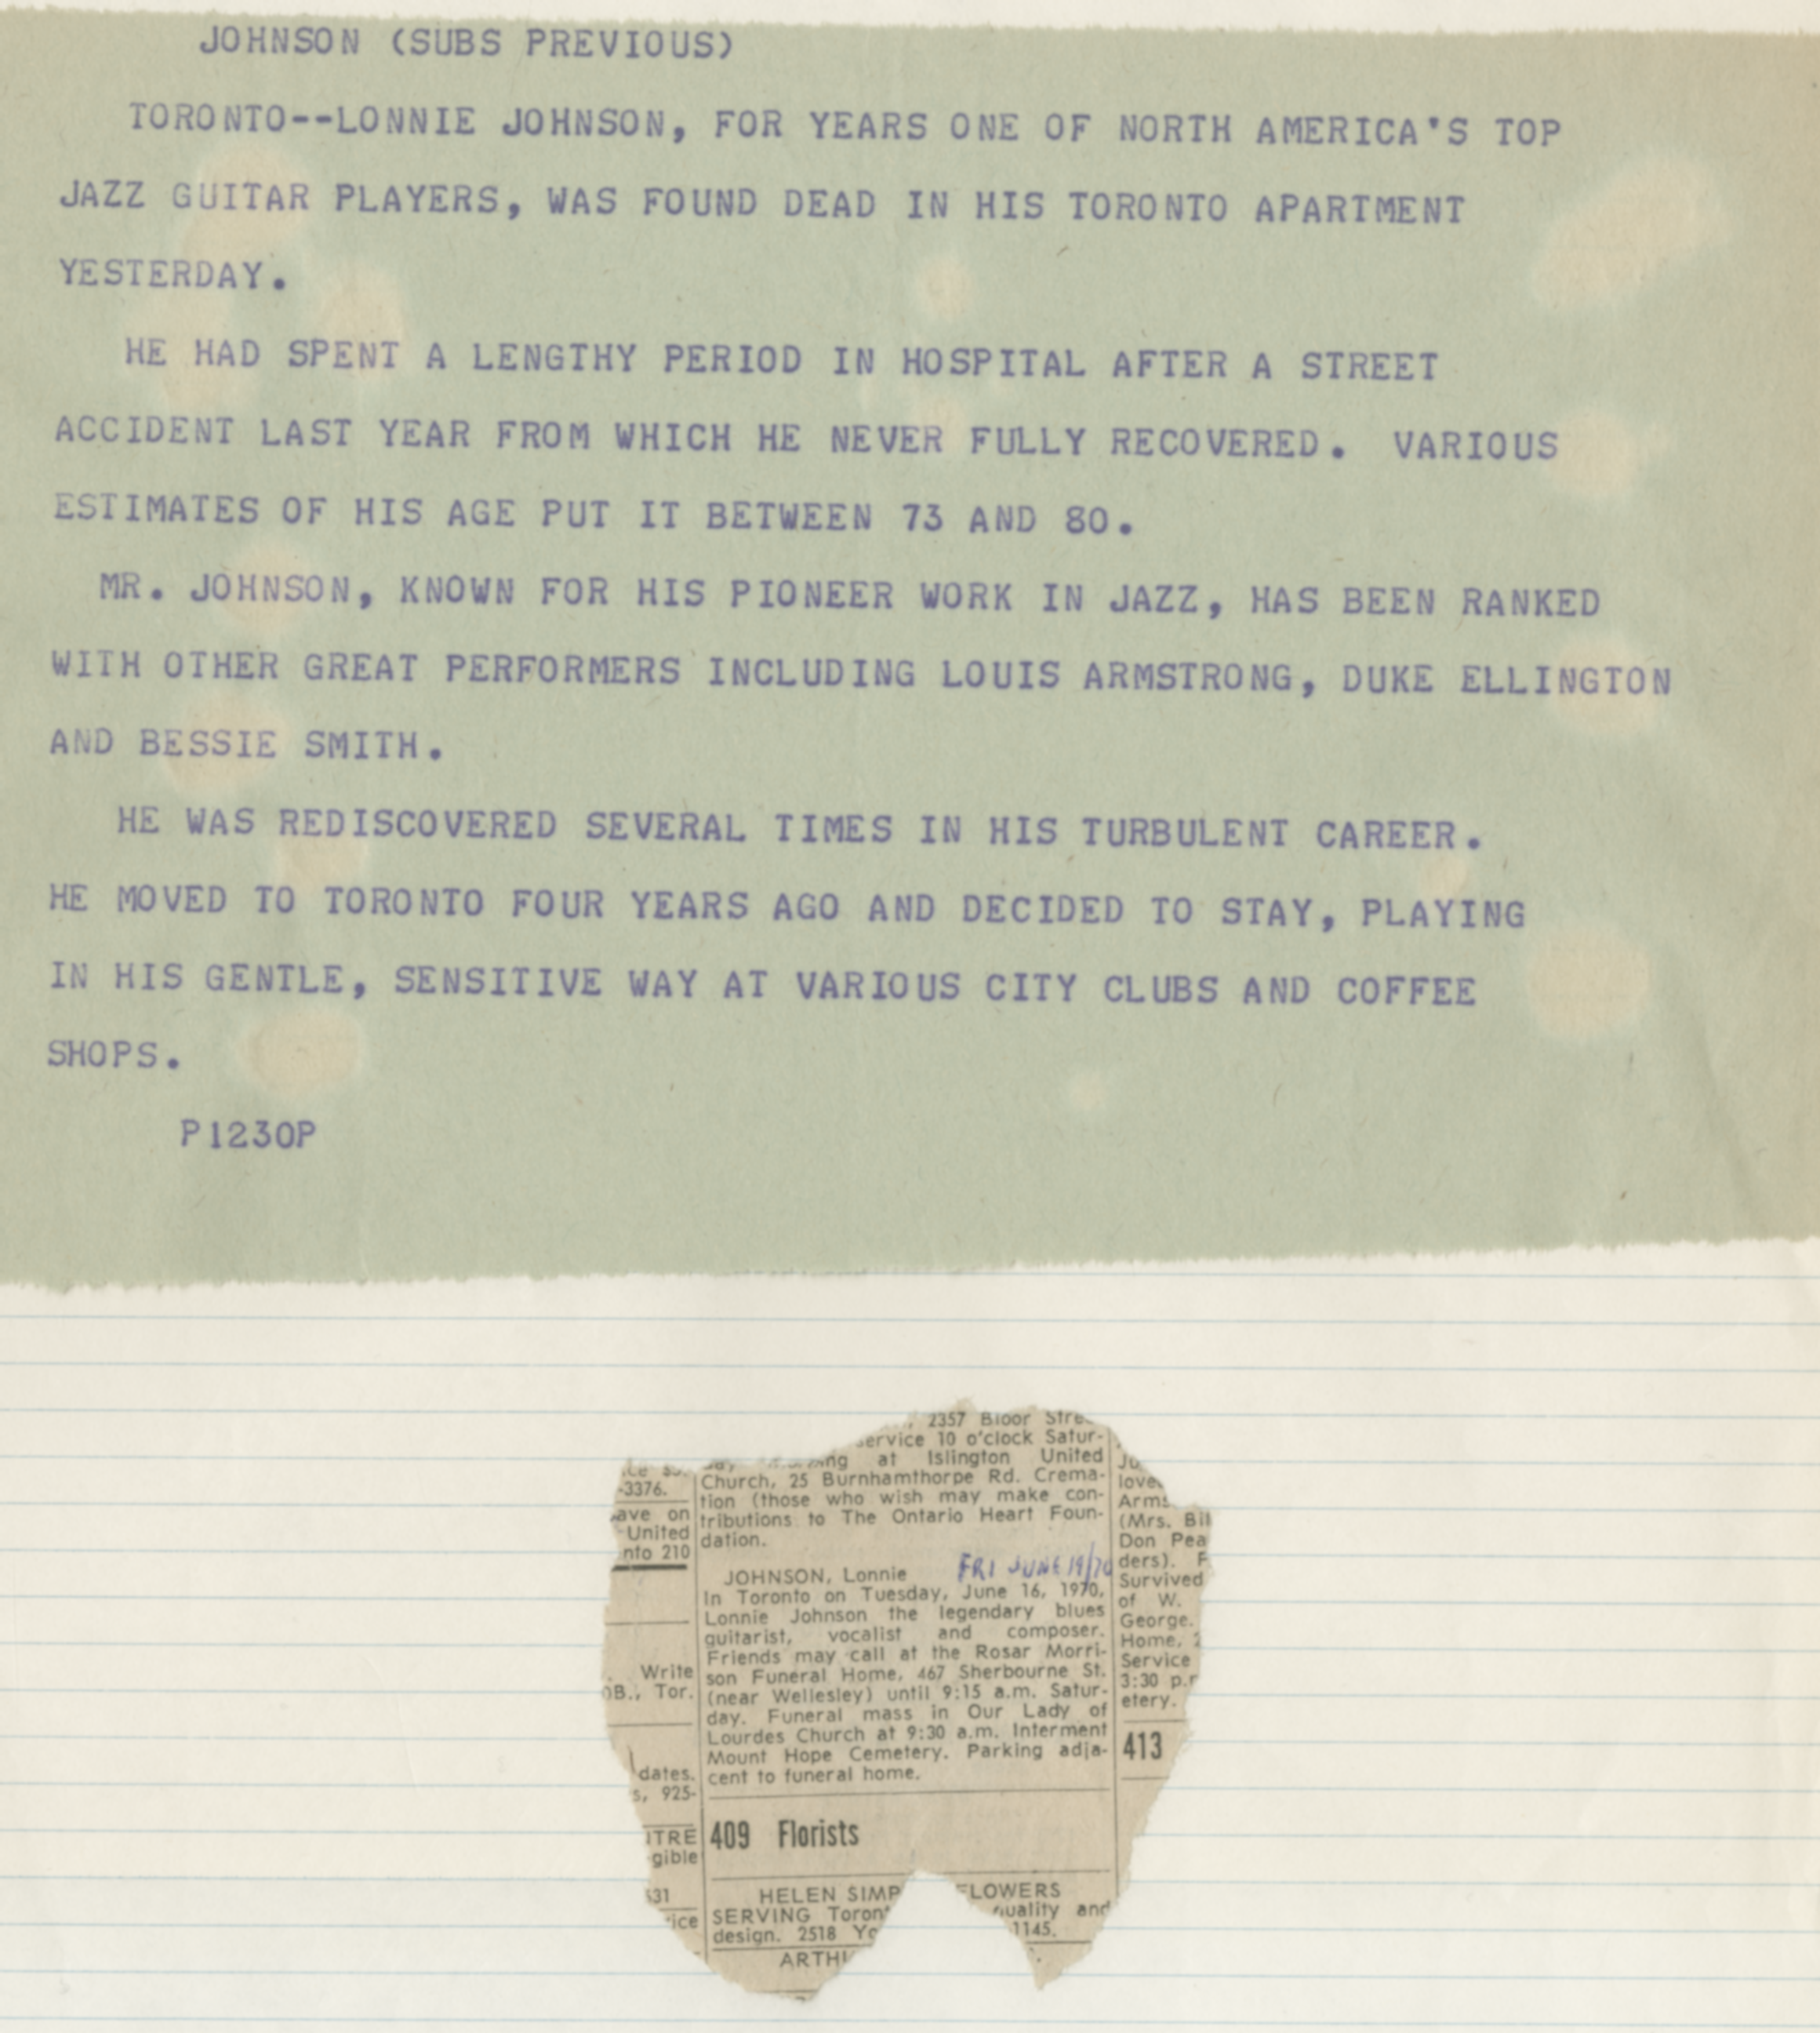 JOHNSON (SUBS PREVIOUS)
TORONTO--LONNIE JOHNSON, FOR YEARS ONE OF NORTH AMERICA'S TOP
JAZZ GUITAR PLAYERS, WAS FOUND DEAD IN HIS TORONTO APARTMENT
YESTERDAY.
HE HAD SPENT A LENGTHY PERIOD IN HOSPITAL AFTER A STREET
ACCIDENT LAST YEAR FROM WHICH HE NEVER FULLY RECOVERED. VARIOUS
ESTIMATES OF HIS AGE PUT IT BETWEEN 73 AND 80.
MR. JOHNSON, KNOWN FOR HIS PIONEER WORK IN JAZZ, HAS BEEN RANKED
WITH OTHER GREAT PERFORMERS INCLUDING LOUIS ARMSTRONG, DUKE ELLINGTON
AND BESSIE SMITH.
HE WAS REDISCOVERED SEVERAL TIMES IN HIS TURBULENT CAREER.
HE MOVED TO TORONTO FOUR YEARS AGO AND DECIDED TO STAY, PLAYING
IN HIS GENTLE, SENSITIVE WAY AT VARIOUS CITY CLUBS AND COFFEE
SHOPS.
P1230P
-3376.
ave on
United
nto 210
Write
OB., Tor.
dates.
s, 925-
NTRE
gible
531
rice
2357 Bloor Stree
service 10 o'clock Satur-
at Islington United
Church, 25 Burnhamthorpe Rd. Crema-
tion (those who wish may make con-
tributions to The Ontario Heart Foun-
dation.
JOHNSON, Lonnie FRI JUNE 19/70
In Toronto on Tuesday, June 16, 1970,
Lonnie Johnson the legendary blues
guitarist, vocalist and composer.
Friends may call at the Rosar Morri-
son Funeral Home, 467 Sherbourne St.
(near Wellesley) until 9:15 a.m. Satur-
day. Funeral mass in Our Lady of
Lourdes Church at 9:30 a.m. Interment
Mount Hope Cemetery. Parking adja-
cent to funeral home.
409 Florists
HELEN SIMP FLOWERS
SERVING Toron quality and
design. 2518 Yo 1145.
ARTHU
Ju
love
Arms
(Mrs. Bil
Don Pea
ders). F
Survived
of W.
George.
Home, 2
Service
3:30 p.m
etery.
413